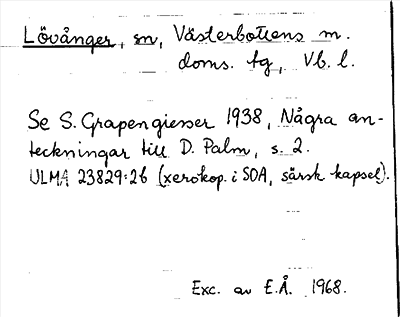 Lövånger, sn, Västerbottens m.
doms. tg, Vb. l.
Se S. Grapengiesser 1938, Några an-
teckningar till D. Palm, s. 2.
ULMA 23829:26 (xerokop. i SOA, särsk kapsel).
Exc. av E.Å. 1968.